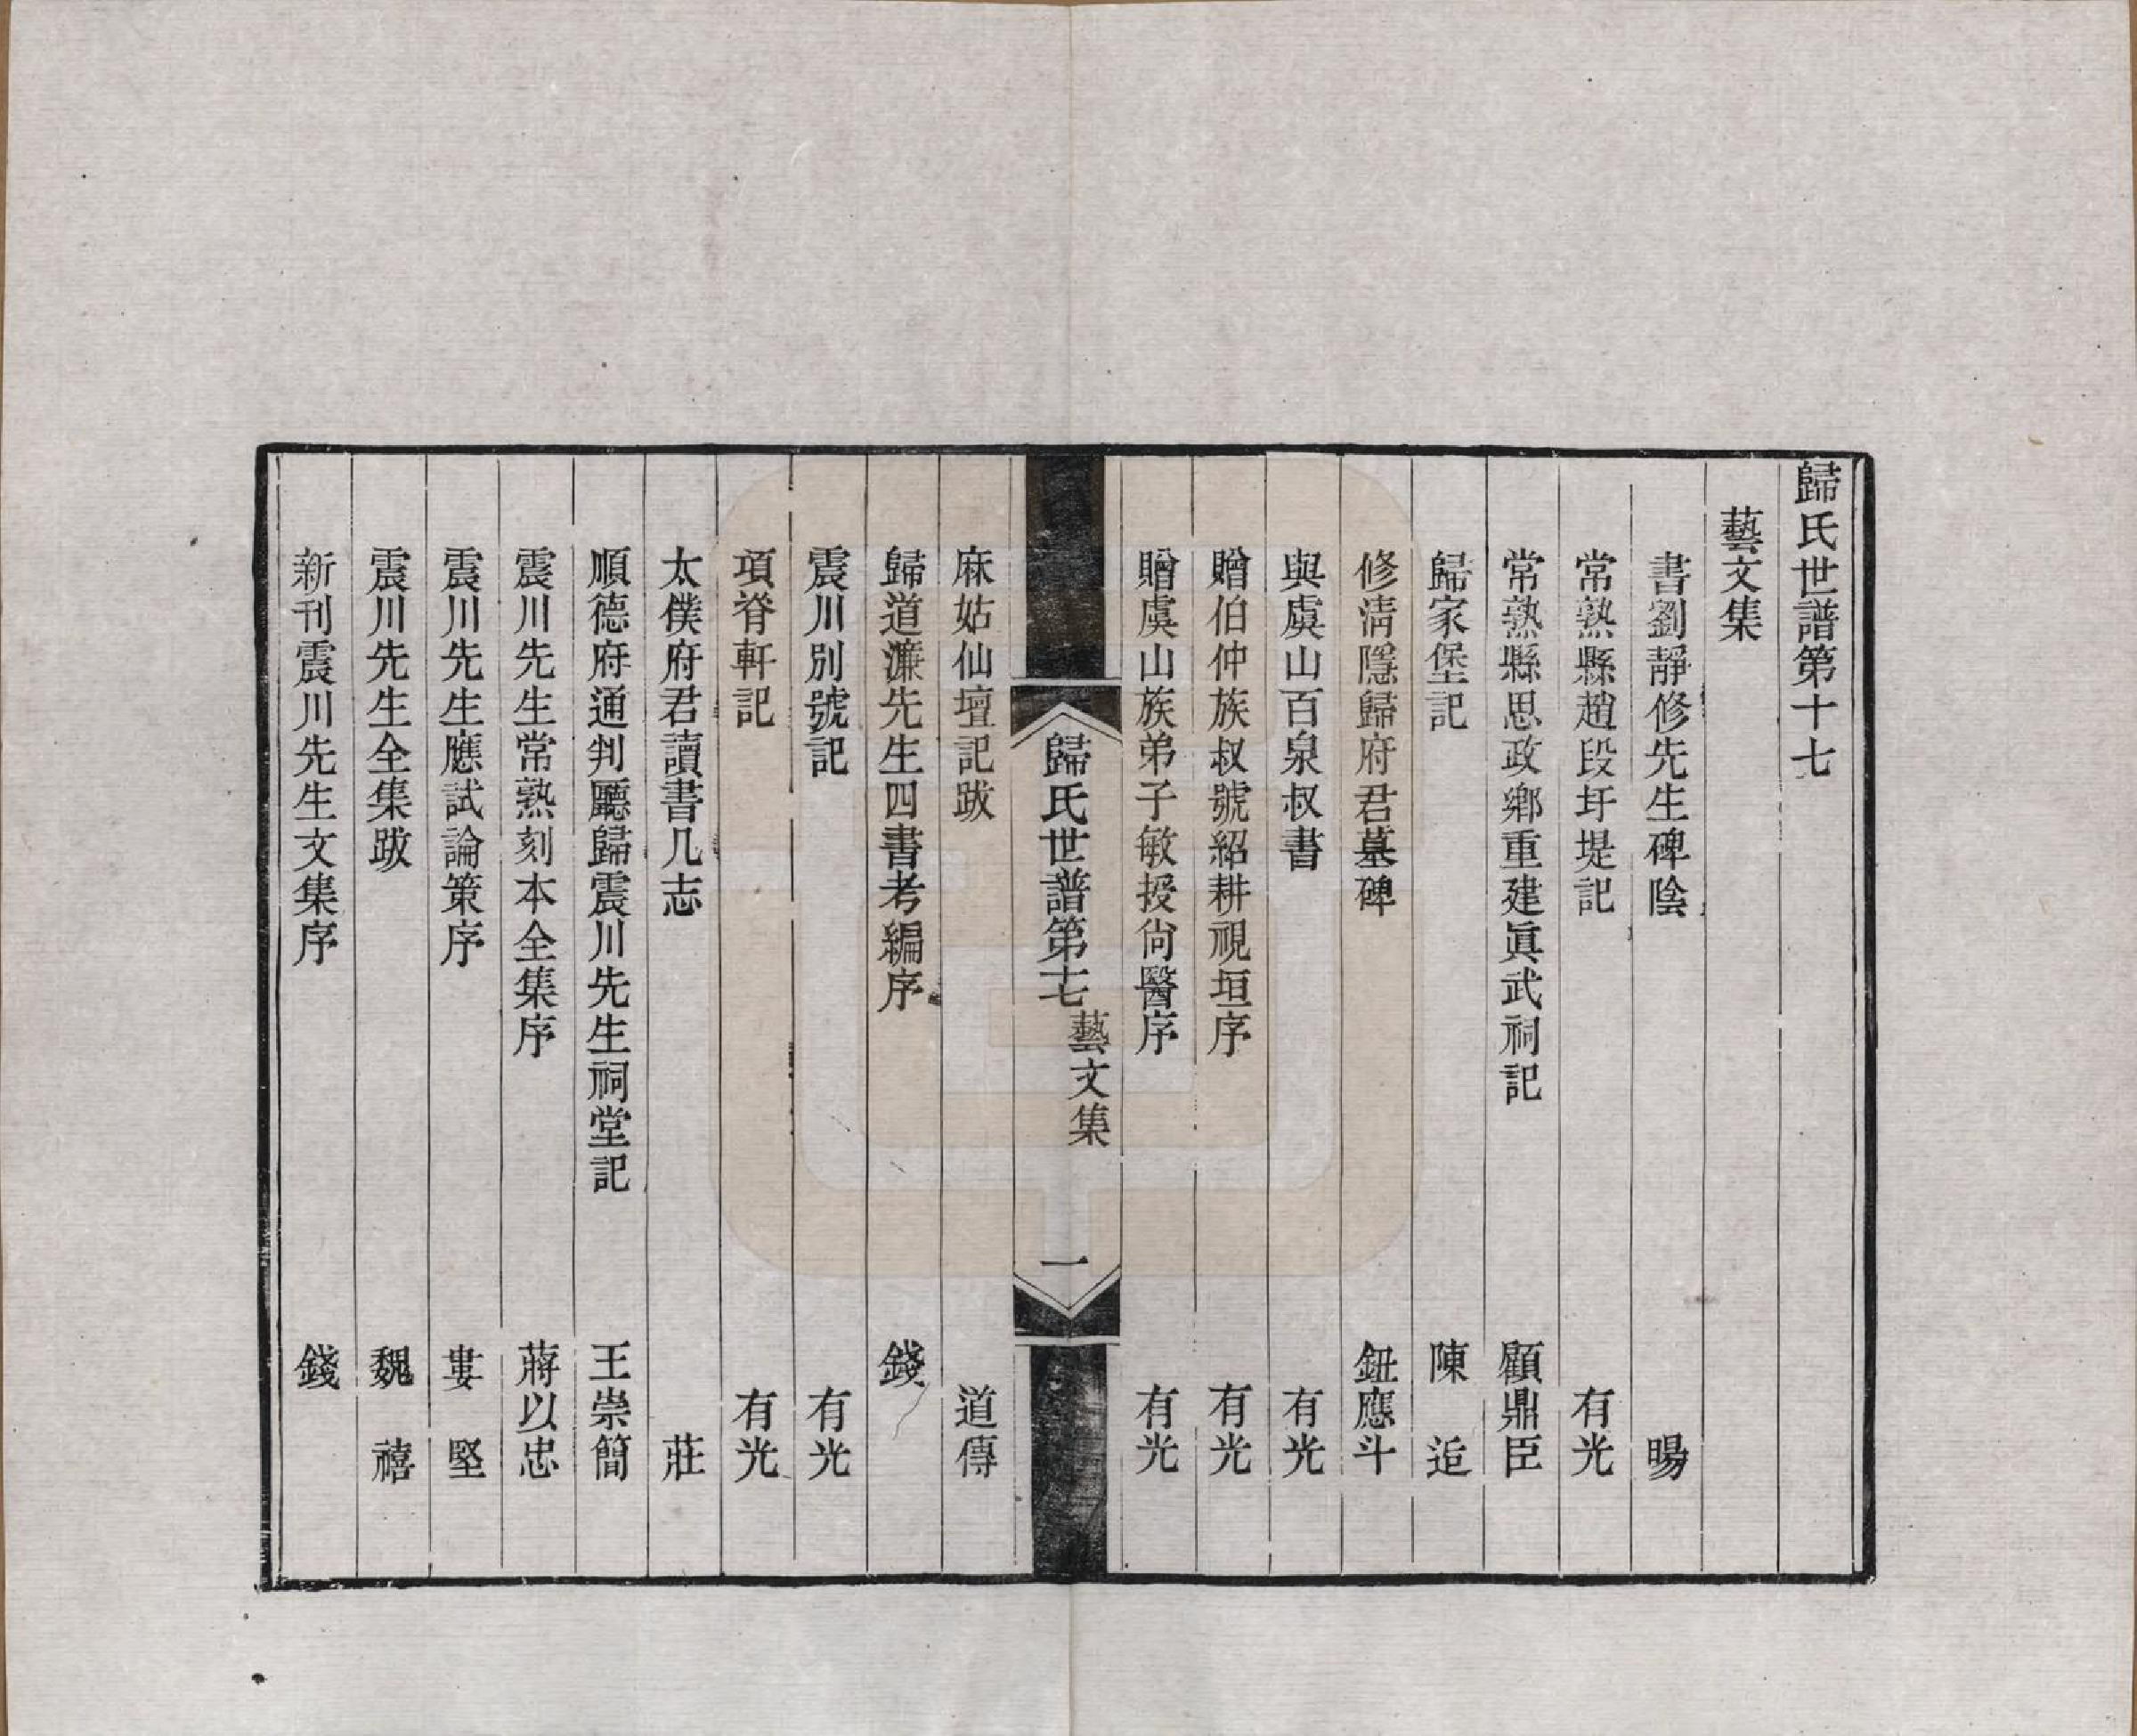 歸氏世譜第十七
藝文集
書劉靜修先生碑陰 暘
常熟縣趙段圩堤記 有光
常熟縣思政鄉重建眞武祠記 顧鼎臣
歸家堡記 陳逅
修淸隱歸府君墓碑 鈕應斗
與虞山百泉叔書 有光
贈伯仲族叔號紹耕視垣序 有光
贈虞山族弟子敏授尙醫序 有光
歸氏世譜第十七 藝文集 一
麻姑仙壇記跋 道傳
歸道濂先生四書考編序 錢
震川別號記 有光
項脊軒記 有光
太僕府君讀書几志 莊
順德府通判廳歸震川先生祠堂記 王崇簡
震川先生常熟刻本全集序 蔣以忠
震川先生應試論策序 婁堅
震川先生全集跋 魏禧
新刊震川先生文集序 錢